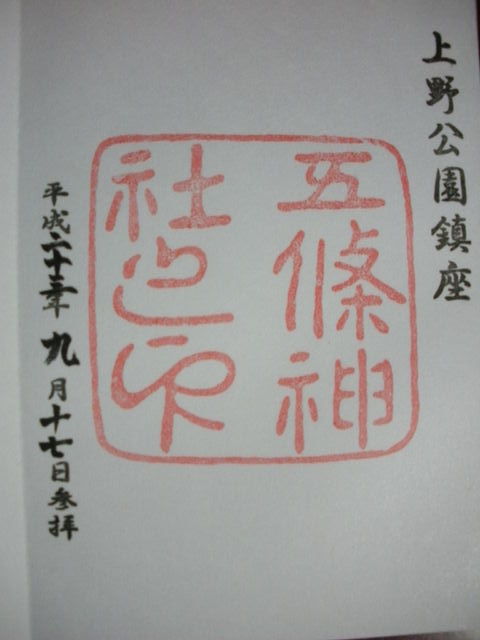 上野公園鎮座
五條神
社之印
平成二十三年九月十七日参拝